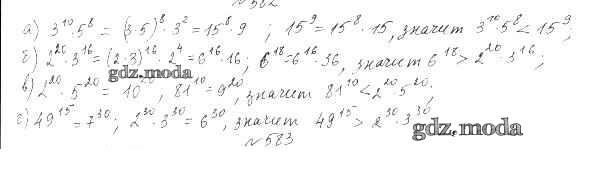 № 582
а) 3¹⁰·5⁸ = (3·5)⁸·3² = 15⁸·9 ; 15⁹ = 15⁸·15, значит 3¹⁰5⁸ < 15⁹;
б) 2²⁰·3¹⁶ = (2·3)¹⁶·2⁴ = 6¹⁶·16; 6¹⁸ = 6¹⁶·36, значит 6¹⁸ > 2²⁰·3¹⁶;
gdz.moda
в) 2²⁰·5²⁰ = 10²⁰, 81¹⁰ = 9²⁰, значит 81¹⁰ < 2²⁰5²⁰;
г) 49¹⁵ = 7³⁰; 2³⁰·3³⁰ = 6³⁰, значит 49¹⁵ > 2³⁰·3³⁰
gdz.moda
№ 583